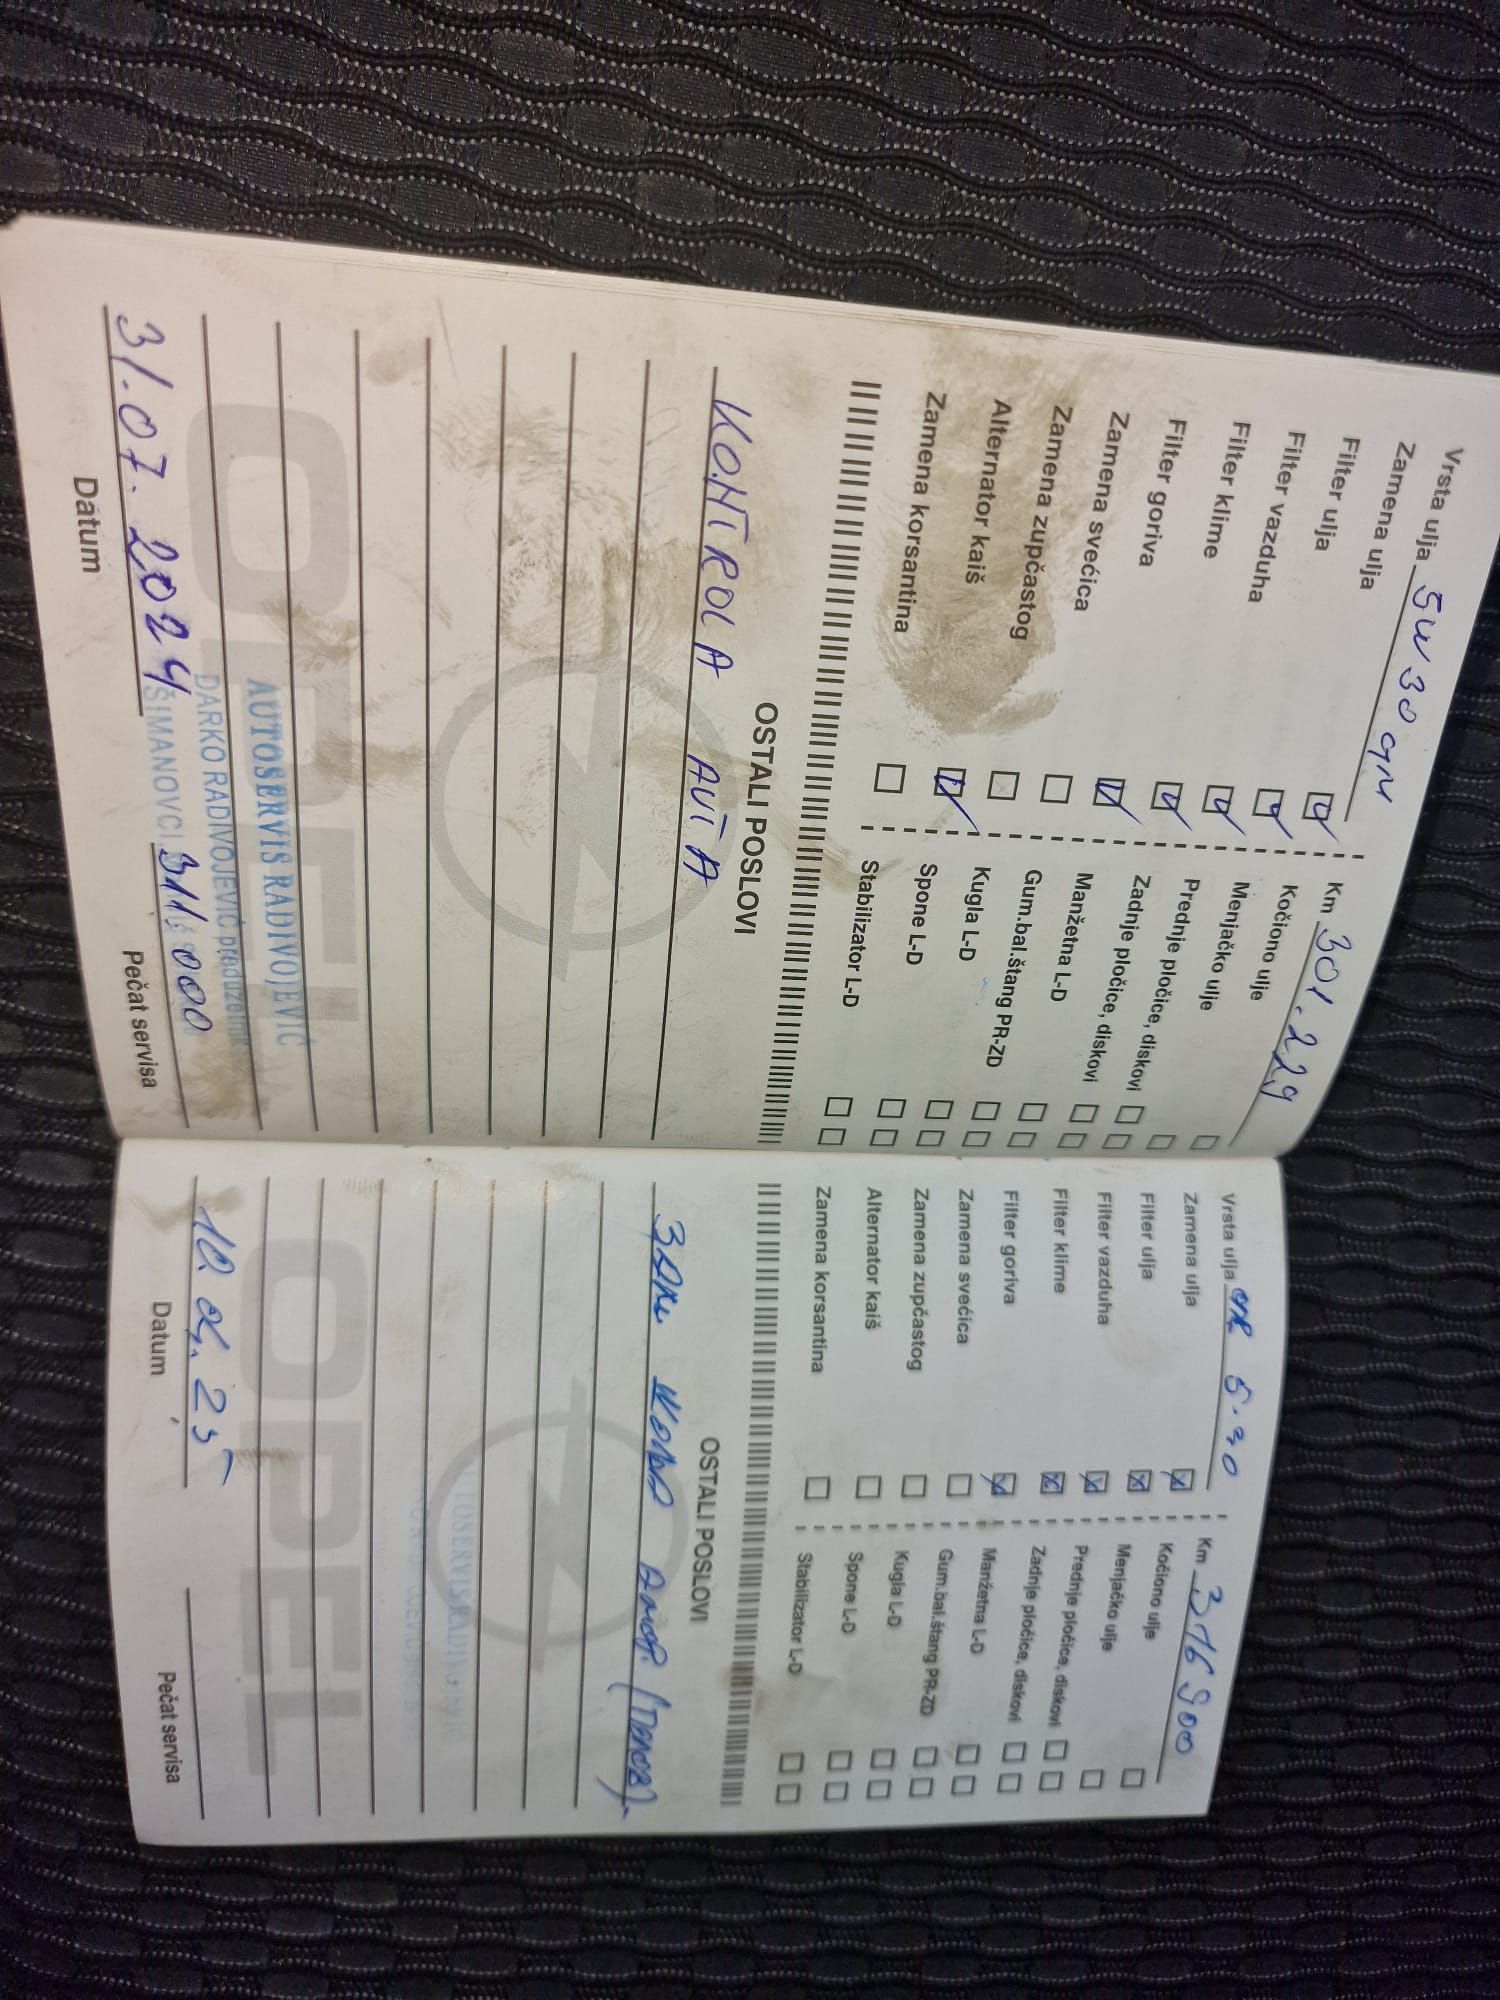 Vrsta ulja 5W30 GM Km 301.229
Zamena ulja Kočiono ulje
Filter ulja Menjačko ulje
Filter vazduha Prednje pločice, diskovi
Filter klime Zadnje pločice, diskovi
Filter goriva Manžetna L-D
Zamena svećica Gum.bal.štang PR-ZD
Zamena zupčastog Kugla L-D
Alternator kaiš Spone L-D
Zamena korsantina Stabilizator L-D
OSTALI POSLOVI
KONTROLA AUTA
OPEL
AUTOSERVIS RADIVOJEVIĆ
DARKO RADIVOJEVIĆ preduzetnik
ŠIMANOVCI
31.07.2024 311.000
Datum Pečat servisa
Vrsta ulja 5.30 Km 316900
Zamena ulja Kočiono ulje
Filter ulja Menjačko ulje
Filter vazduha Prednje pločice, diskovi
Filter klime Zadnje pločice, diskovi
Filter goriva Manžetna L-D
Zamena svećica Gum.bal.štang PR-ZD
Zamena zupčastog Kugla L-D
Alternator kaiš Spone L-D
Zamena korsantina Stabilizator L-D
OSTALI POSLOVI
OPEL
25
Datum Pečat servisa